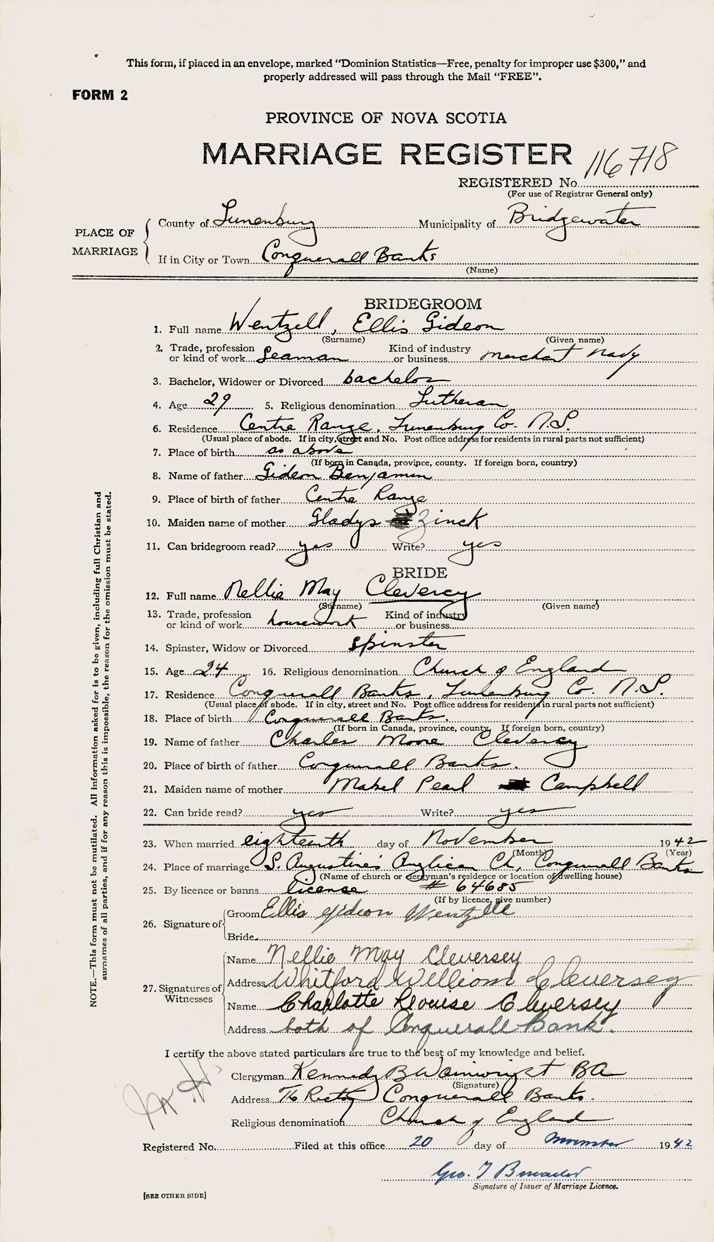 This form, if placed in an envelope, marked “Dominion Statistics—Free, penalty for improper use $300,” and
properly addressed will pass through the Mail “FREE”.
FORM 2
PROVINCE OF NOVA SCOTIA
MARRIAGE REGISTER
REGISTERED No. 116718
(For use of Registrar General only)
PLACE OF MARRIAGE
County of Lunenburg Municipality of Bridgewater
If in City or Town Conquerall Banks
(Name)
BRIDEGROOM
1. Full name Wentzell, Ellis Gideon
(Surname) (Given name)
2. Trade, profession or kind of work Seaman Kind of industry or business merchant navy
3. Bachelor, Widower or Divorced bachelor
4. Age 29 5. Religious denomination Lutheran
6. Residence Centre Range, Lunenburg Co. N.S.
(Usual place of abode. If in city, street and No. Post office address for residents in rural parts not sufficient)
7. Place of birth as above
(If born in Canada, province, county. If foreign born, country)
8. Name of father Gideon Benjamin
9. Place of birth of father Centre Range
10. Maiden name of mother Gladys Zinck
11. Can bridegroom read? yes Write? yes
BRIDE
12. Full name Nellie May Clevercy
(Surname) (Given name)
13. Trade, profession or kind of work housework Kind of industry or business
14. Spinster, Widow or Divorced spinster
15. Age 24 16. Religious denomination Church of England
17. Residence Conquerall Banks, Lunenburg Co. N.S.
(Usual place of abode. If in city, street and No. Post office address for residents in rural parts not sufficient)
18. Place of birth Conquerall Banks.
(If born in Canada, province, county. If foreign born, country)
19. Name of father Charles Moore Clevercy
20. Place of birth of father Conquerall Banks.
21. Maiden name of mother Mabel Pearl Campbell
22. Can bride read? yes Write? yes
23. When married eighteenth day of November 1942
(Month) (Year)
24. Place of marriage S. Augustine's Anglican Ch, Conquerall Banks
(Name of church or clergyman's residence or location of dwelling house)
25. By licence or banns license # 64685
(If by licence, give number)
26. Signature of
Groom Ellis Gideon Wentzell
Bride
27. Signatures of Witnesses
Name Nellie May Cleversey
Address Whitford William Cleversey
Name Charlotte Louise Cleversey
Address both of Conquerall Bank.
I certify the above stated particulars are true to the best of my knowledge and belief.
Clergyman Kennedy B Wainwright BA
(Signature)
Address The Rectory Conquerall Banks.
Religious denomination Church of England
Registered No. Filed at this office 20 day of November 1942
Geo. T
Signature of Issuer of Marriage Licence.
[SEE OTHER SIDE]
NOTE.—This form must not be mutilated. All information asked for is to be given, including full Christian and
surnames of all parties, and if for any reason this is impossible, the reason for the omission must be stated.